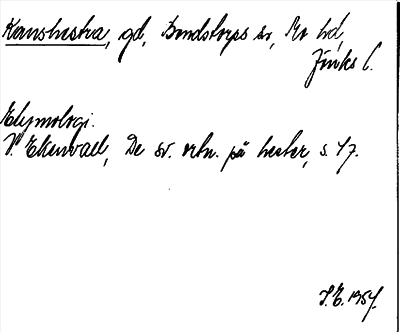 Kanshestra, gd, Bondstorps sn, Mo hd,
Jönk. l.
Etymologi.
V. Ekenvall, De sv. ortn. på hester, s. 47.